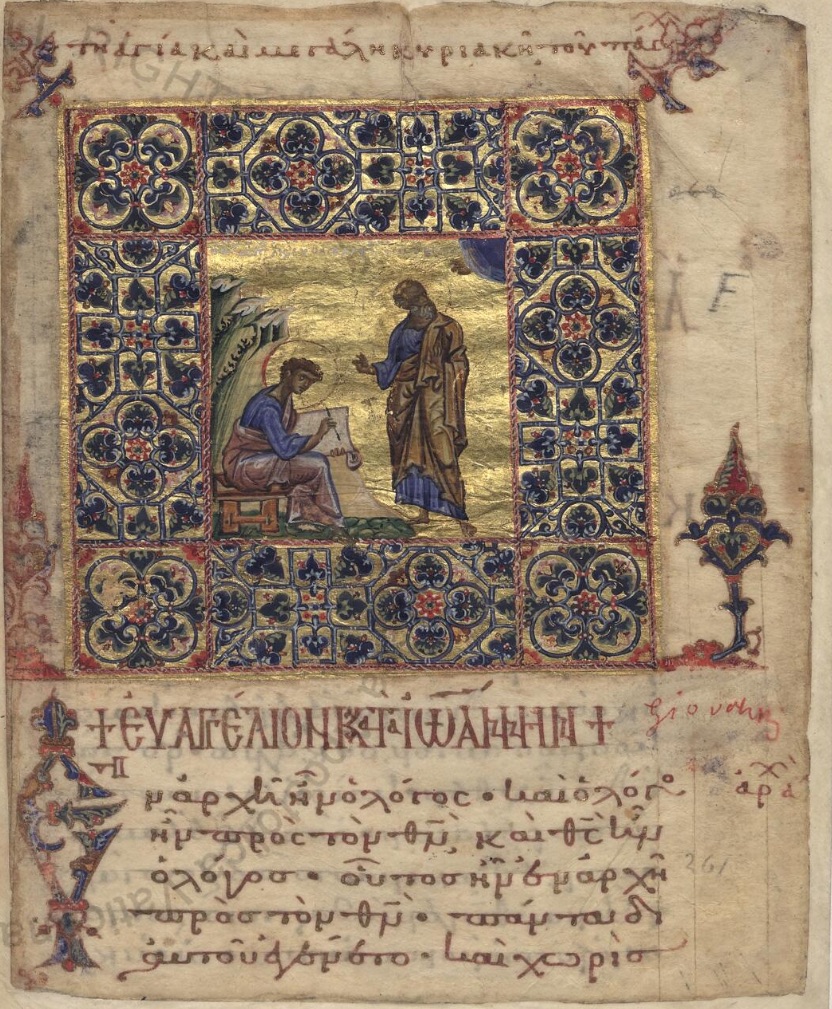 τῇ ἁγία καὶ μεγάλη κυριακῇ τοῦ πάσχ
+ ΕΥΑΓΓΕΛΙΟΝ ΚΑΤΑ ΙΩΑΝΝΗΝ +
Giovanni
ν ἀρχῆ ἦν ὁ λόγος · καὶ ὁ λόγο
ἀρχ
ἦν πρὸς τὸν θν̄, καὶ θς̄ ἦν
ὁ λόγος · οὗτος ἦν ἐν ἀρχῆ
261
πρὸς τὸν θν̄ · πάντα δι
αυτοῦ ἐγένετο · καὶ χωρὶσ